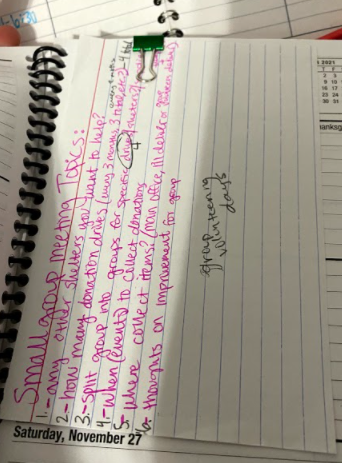 Small group meeting Topics:
1.- any other shelters you want to help?
2- how many donation drives (every 3 months, 3 total, etc?) - 4 total
3- split group into groups for specific drives/shelters?
4
4- when (event) to collect donations
5- where collect items? (main office, ill deliver or
6- thoughts on improvement for group
group
volunteering
days
Saturday, November 27
2021
T F
2 3
9 10
16 17
23 24
30 31